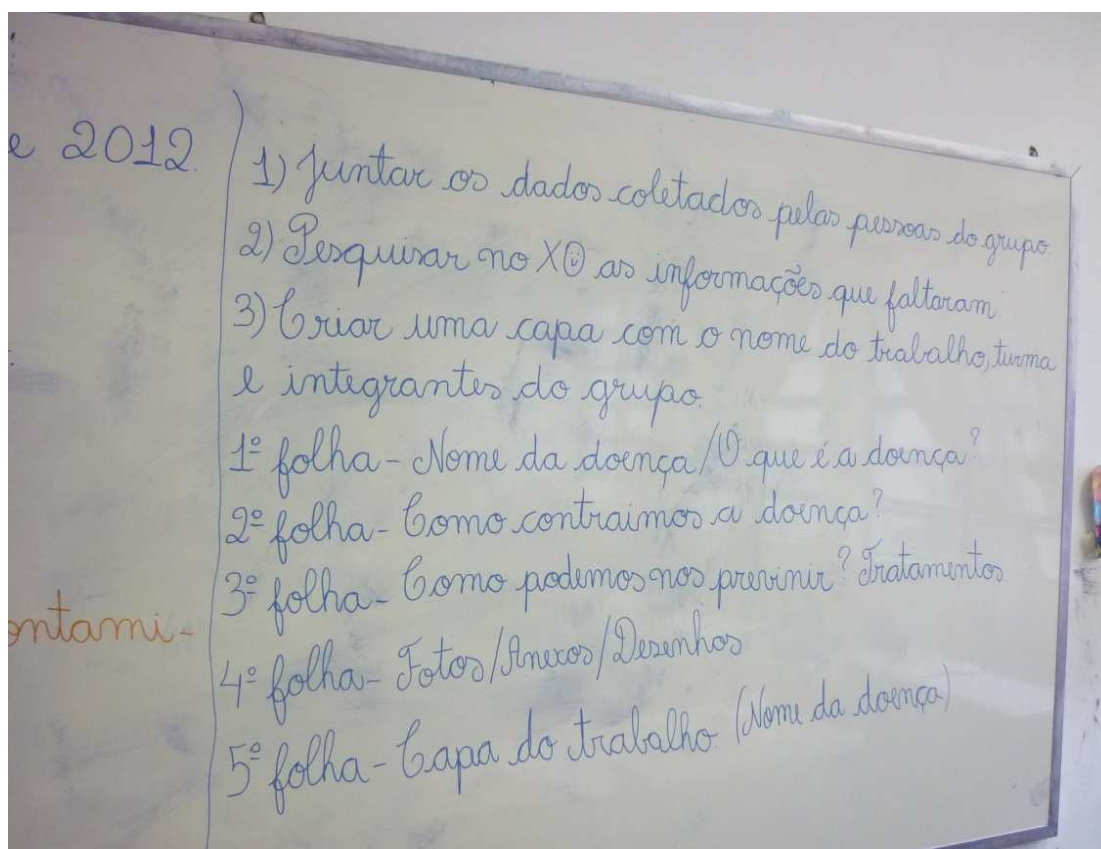 e 2012.
1) Juntar os dados coletados pelas pessoas do grupo.
2) Pesquisar no XO as informações que faltaram.
3) Criar uma capa com o nome do trabalho, turma
e integrantes do grupo.
1º folha - Nome da doença / O que é a doença?
2º folha - Como contraimos a doença?
3º folha - Como podemos nos previnir? Tratamentos
4º folha - Fotos/Anexos/Desenhos
5º folha - Capa do trabalho (Nome da doença)
ontami-